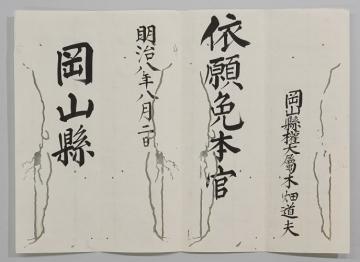 岡山縣權大属木畑道夫
依願免本官
明治八年八月二日
岡山縣